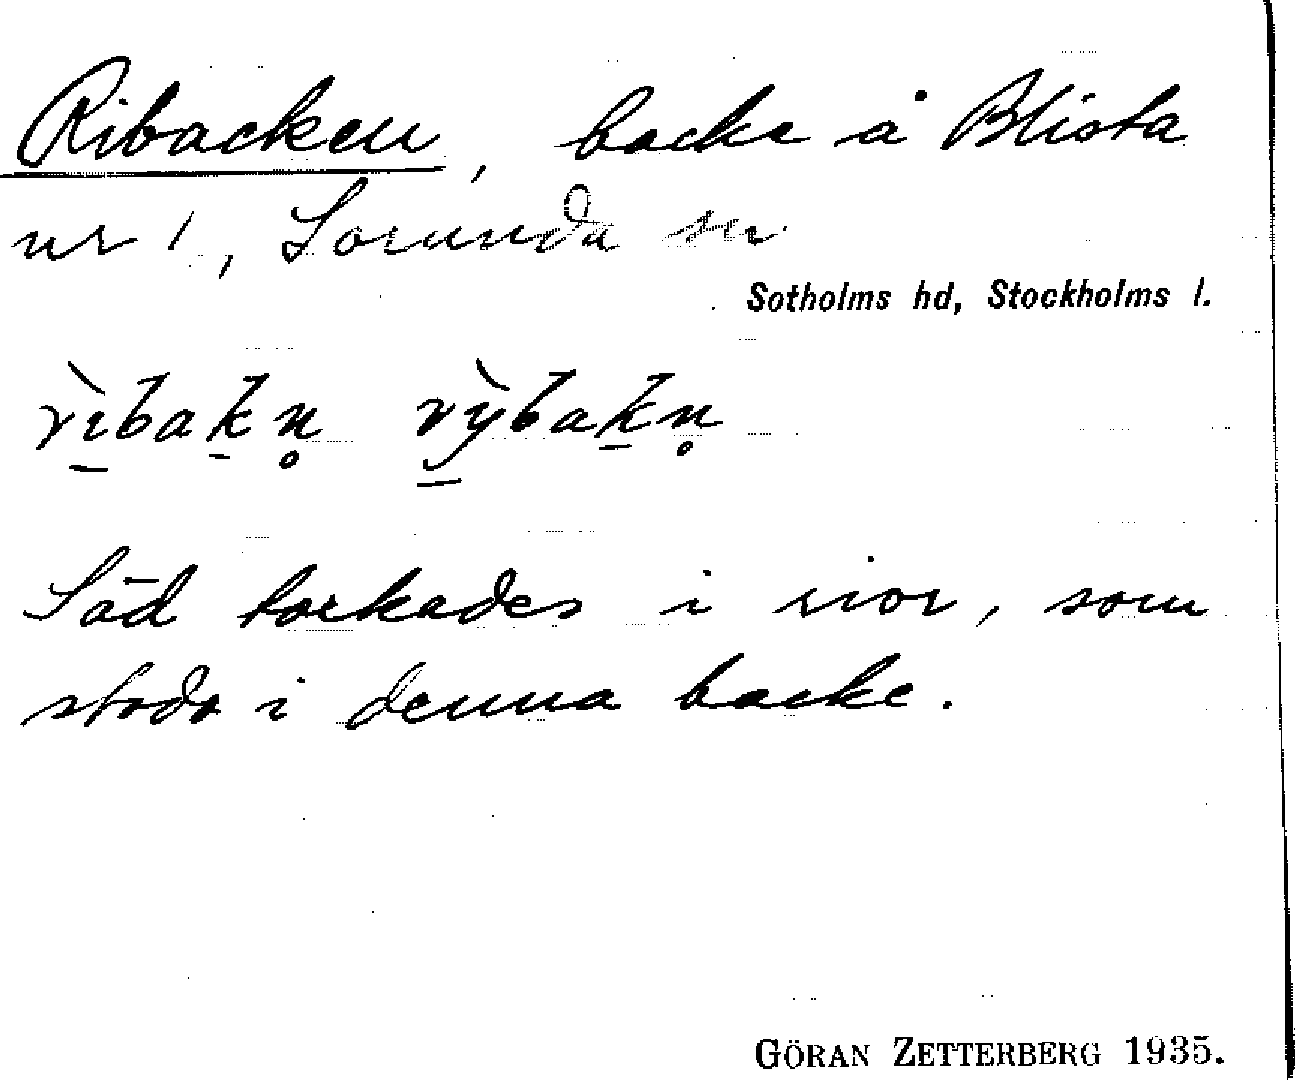 Ribacken, backe å Blista
nr 1, Sorunda sn
Sotholms hd, Stockholms l.
rìbakn̥ rỳbakn̥
Säd torkades i rior, som
stodo i denna backe.
GÖRAN ZETTERBERG 1935.